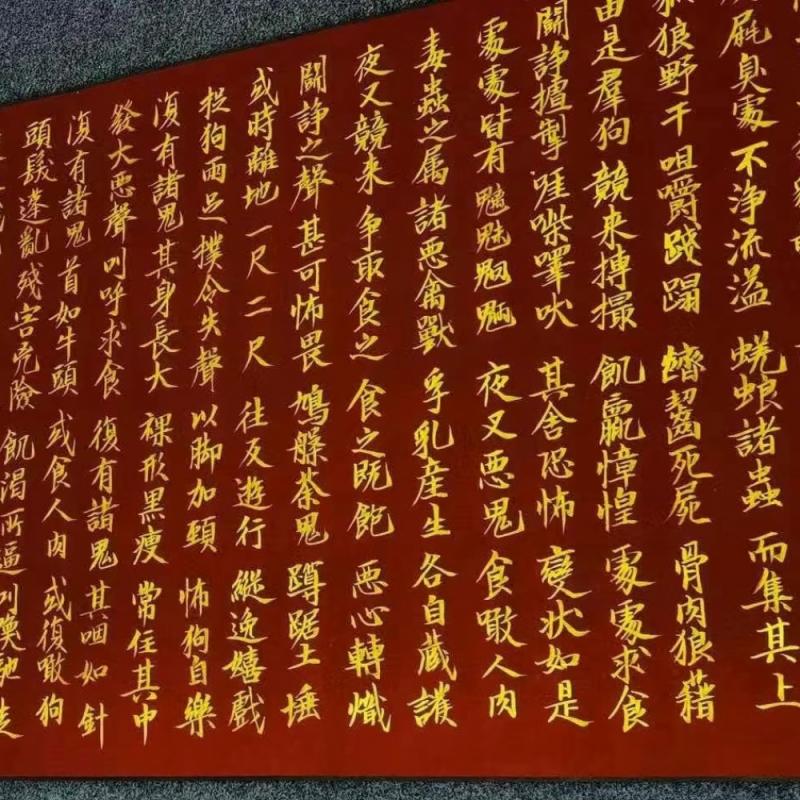 臭處 不淨流溢 蜣蜋諸蟲 而集其上
狼野干 咀嚼踐蹋 嚌齧死屍 骨肉狼藉
由是羣狗 競来搏撮 飢羸慞惶 處處求食
鬪諍摣掣 啀喍嘷吠 其舍恐怖 變狀如是
處處皆有 魑魅魍魎 夜叉惡鬼 食噉人肉
毒蟲之属 諸惡禽獸 孚乳產生 各自藏護
夜叉競来 爭取食之 食之既飽 惡心轉熾
鬪諍之聲 甚可怖畏 鳩槃荼鬼 蹲踞土埵
或時離地 一尺二尺 往反遊行 縱逸嬉戲
捉狗兩足 撲令失聲 以脚加頸 怖狗自樂
復有諸鬼 其身長大 裸形黑瘦 常住其中
發大惡聲 叫呼求食 復有諸鬼 其咽如針
復有諸鬼 首如牛頭 或食人肉 或復噉狗
頭髮蓬亂 殘害兇險 飢渴所逼 叫喚馳走